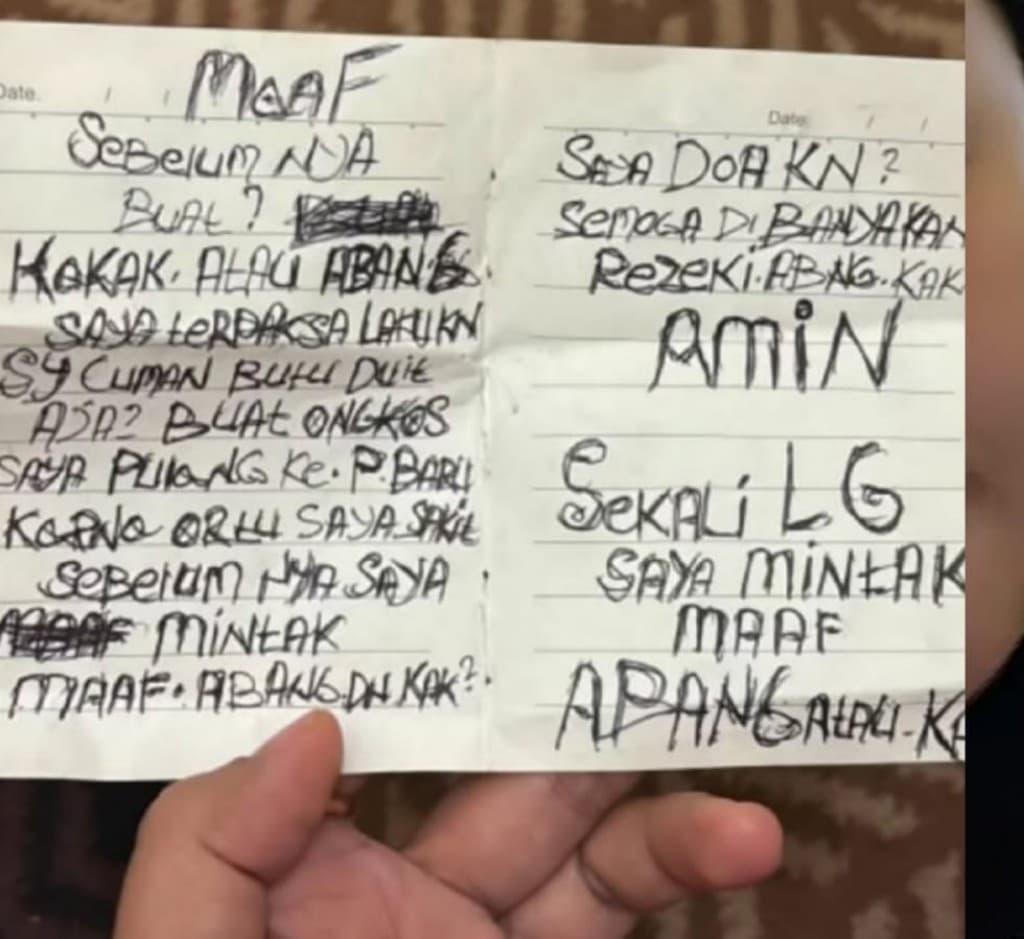 Date. / /
MAAF
SEBELUM NYA
BUAT ?
KAKAK. ATAU ABANG.
SAYA tERPAKSA LAKUKN
SY CUMAN BUTU DUIt
AJA? BUAt ONGKOS
SAYA PULANG KE. P. BARU
KARNA ORtU SAYA SAKIt
SEBELUM NYA SAYA
MINtAK
MAAF. ABANG DN KAK?.
Date / /
SAYA DOA KN ?
SEMOGA DI BANYAKAN
REZEKI. ABNG. KAK
AMIN
SEKALI LG
SAYA MINtAK
MAAF
ABANG AtAU-KA